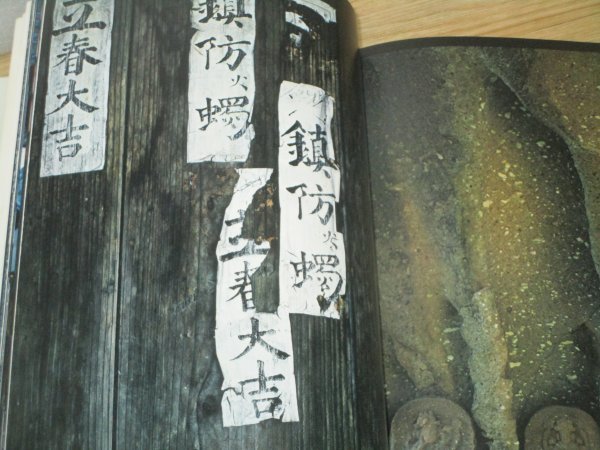 立春大吉
鎮防火蠋
鎮防火蠋
立春大吉